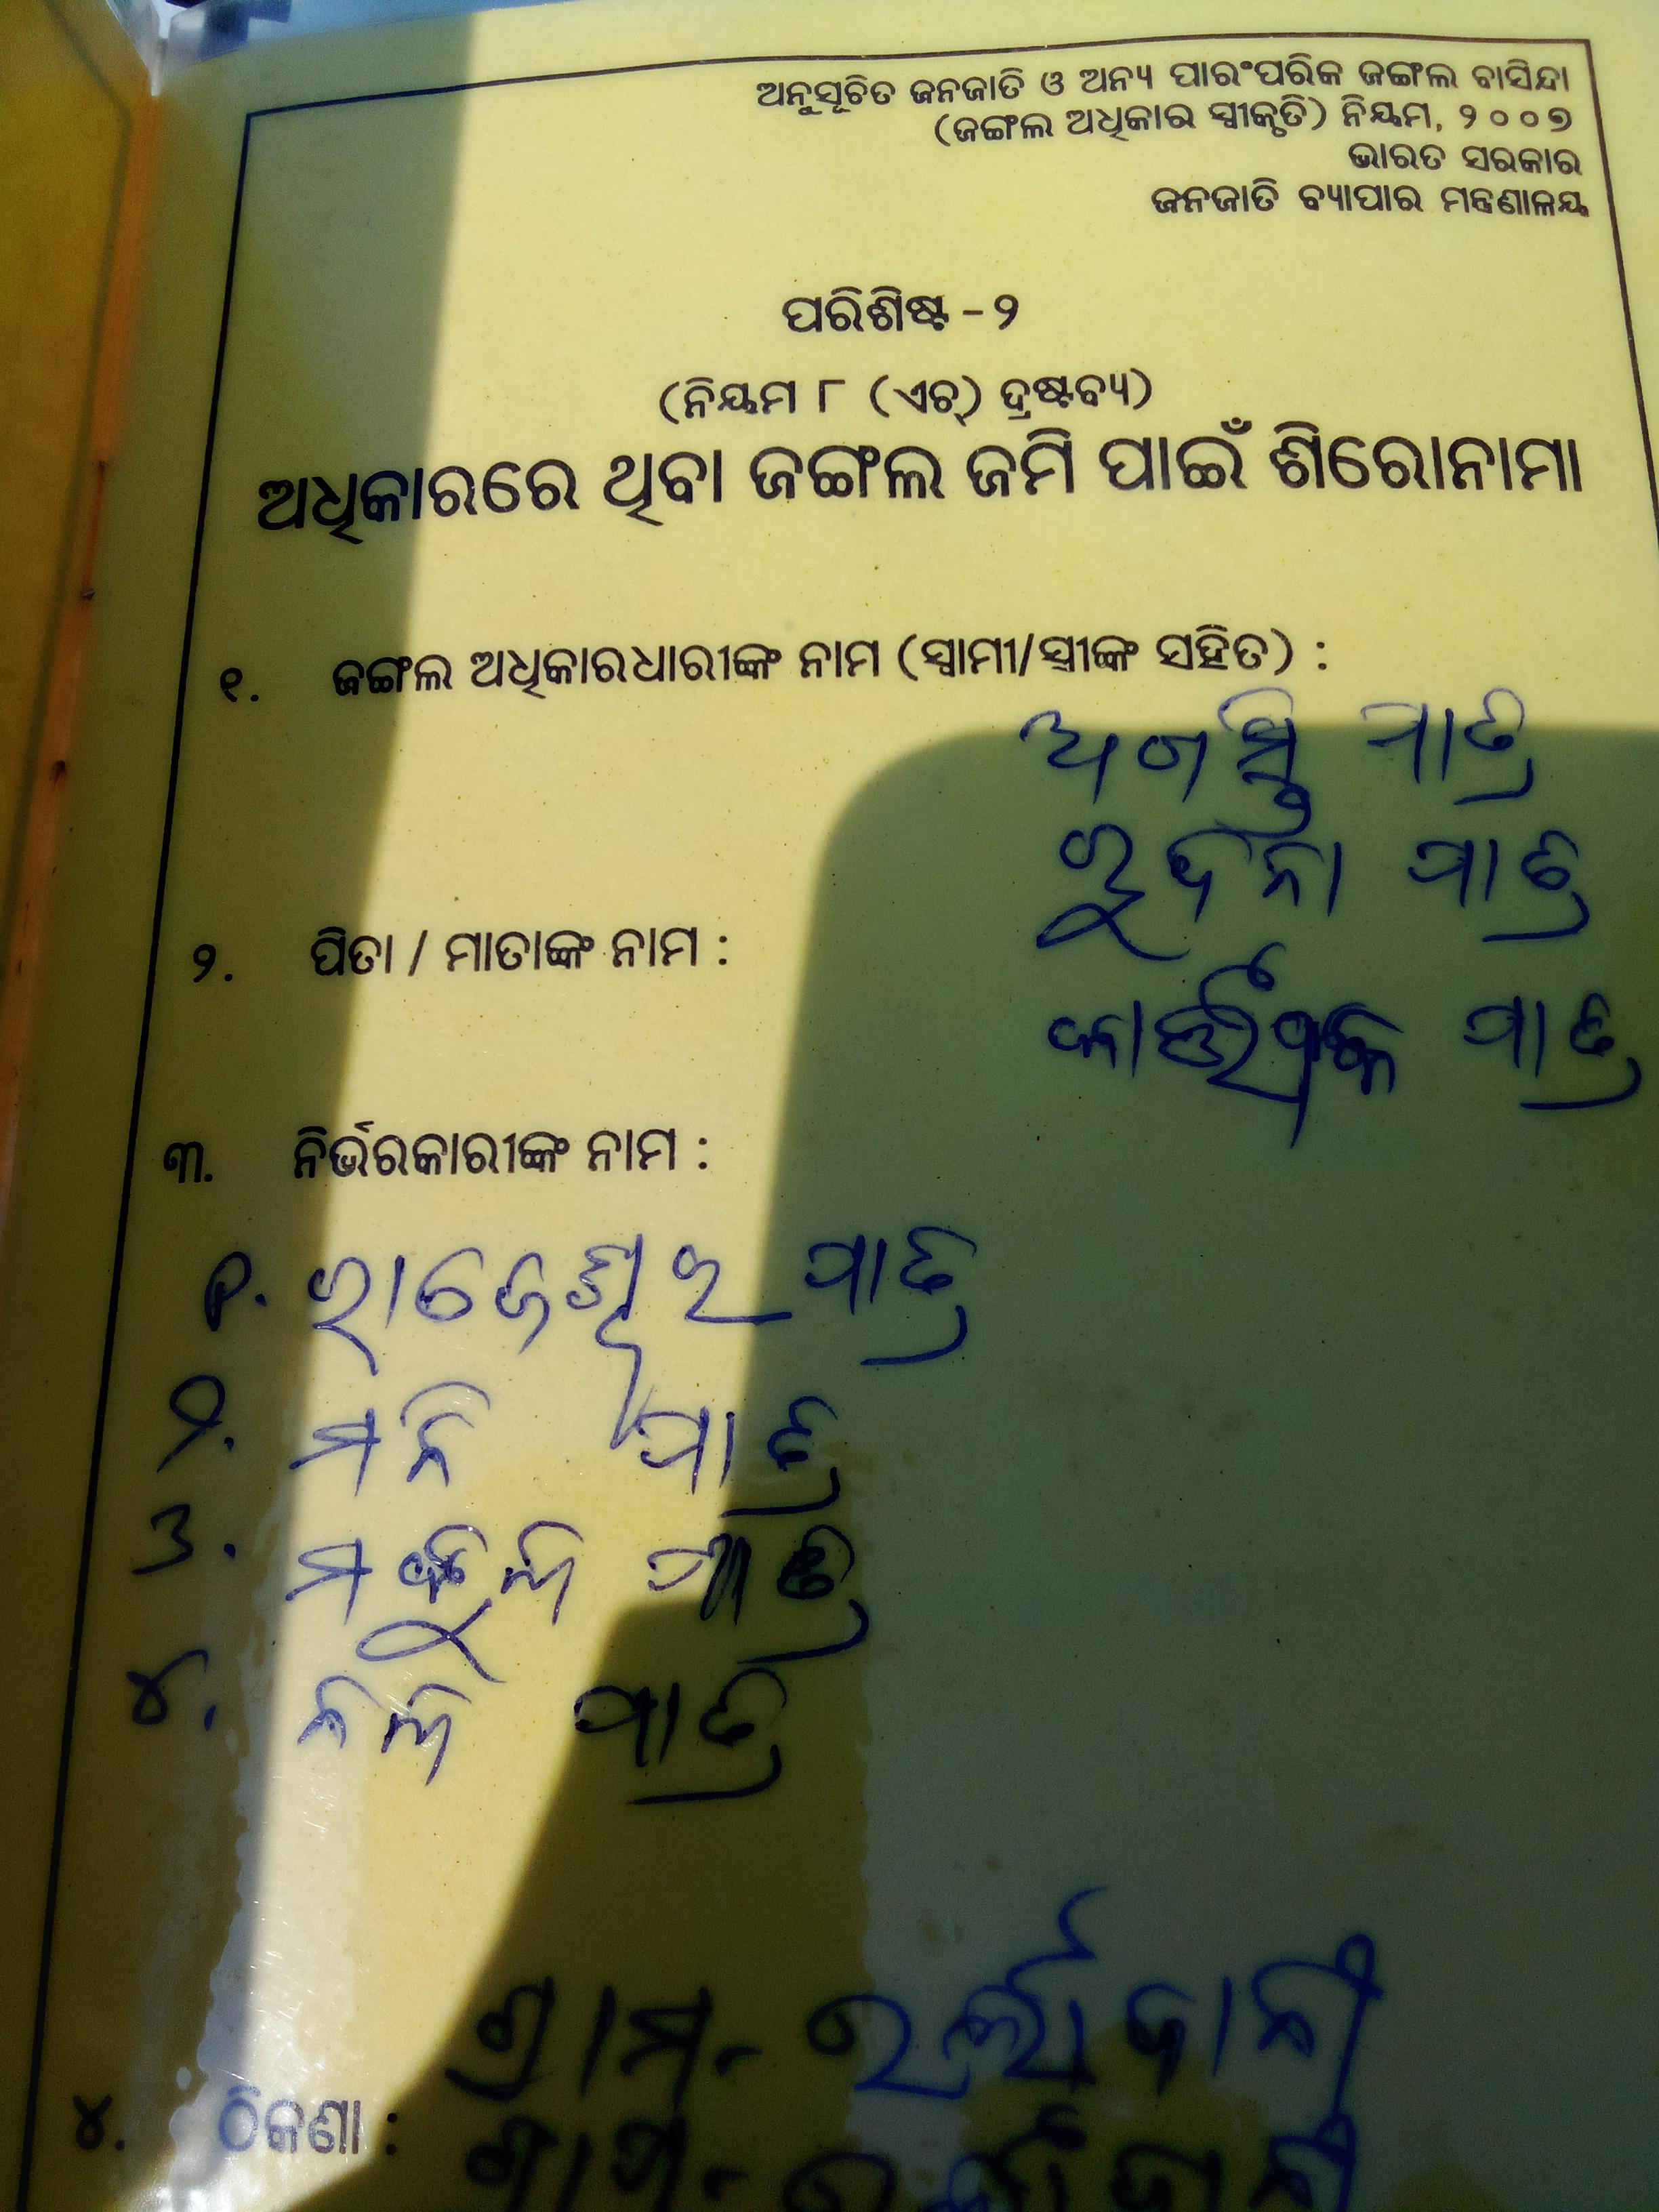 ଅନୁସୂଚିତ ଜନଜାତି ଓ ଅନ୍ୟ ପାରଂପରିକ ଜଙ୍ଗଲ ବାସିନ୍ଦା
(ଜଙ୍ଗଲ ଅଧିକାର ସ୍ୱୀକୃତି) ନିୟମ, ୨୦୦୭
ଭାରତ ସରକାର
ଜନଜାତି ବ୍ୟାପାର ମନ୍ତ୍ରଣାଳୟ
ପରିଶିଷ୍ଟ - ୨
(ନିୟମ ୮ (ଏଚ୍) ଦ୍ରଷ୍ଟବ୍ୟ)
ଅଧିକାରରେ ଥିବା ଜଙ୍ଗଲ ଜମି ପାଇଁ ଶିରୋନାମା
୧. ଜଙ୍ଗଲ ଅଧିକାରଧାରୀଙ୍କ ନାମ (ସ୍ୱାମୀ/ସ୍ତ୍ରୀଙ୍କ ସହିତ) :
ଅଗସ୍ତି ପାତ୍ର
ପାତ୍ର
୨. ପିତା / ମାତାଙ୍କ ନାମ :
କାର୍ତ୍ତିକ ପାତ୍ର
୩. ନିର୍ଭରକାରୀଙ୍କ ନାମ :
୧. ରାଜେଶ୍ୱର ପାତ୍ର
୨. ମନି ପାତ୍ର
୩. ପାତ୍ର
୪. ନଳି ପାତ୍ର
ଗ୍ରାମ-
୪. ଠିକଣା :